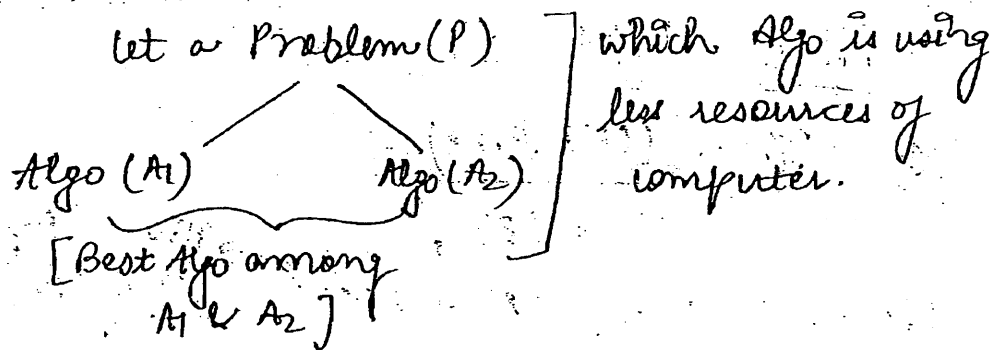 let a Problem (P)
Algo (A1) Algo (A2)
[Best Algo among
A1 & A2]
which Algo is using
less resources of
computer.